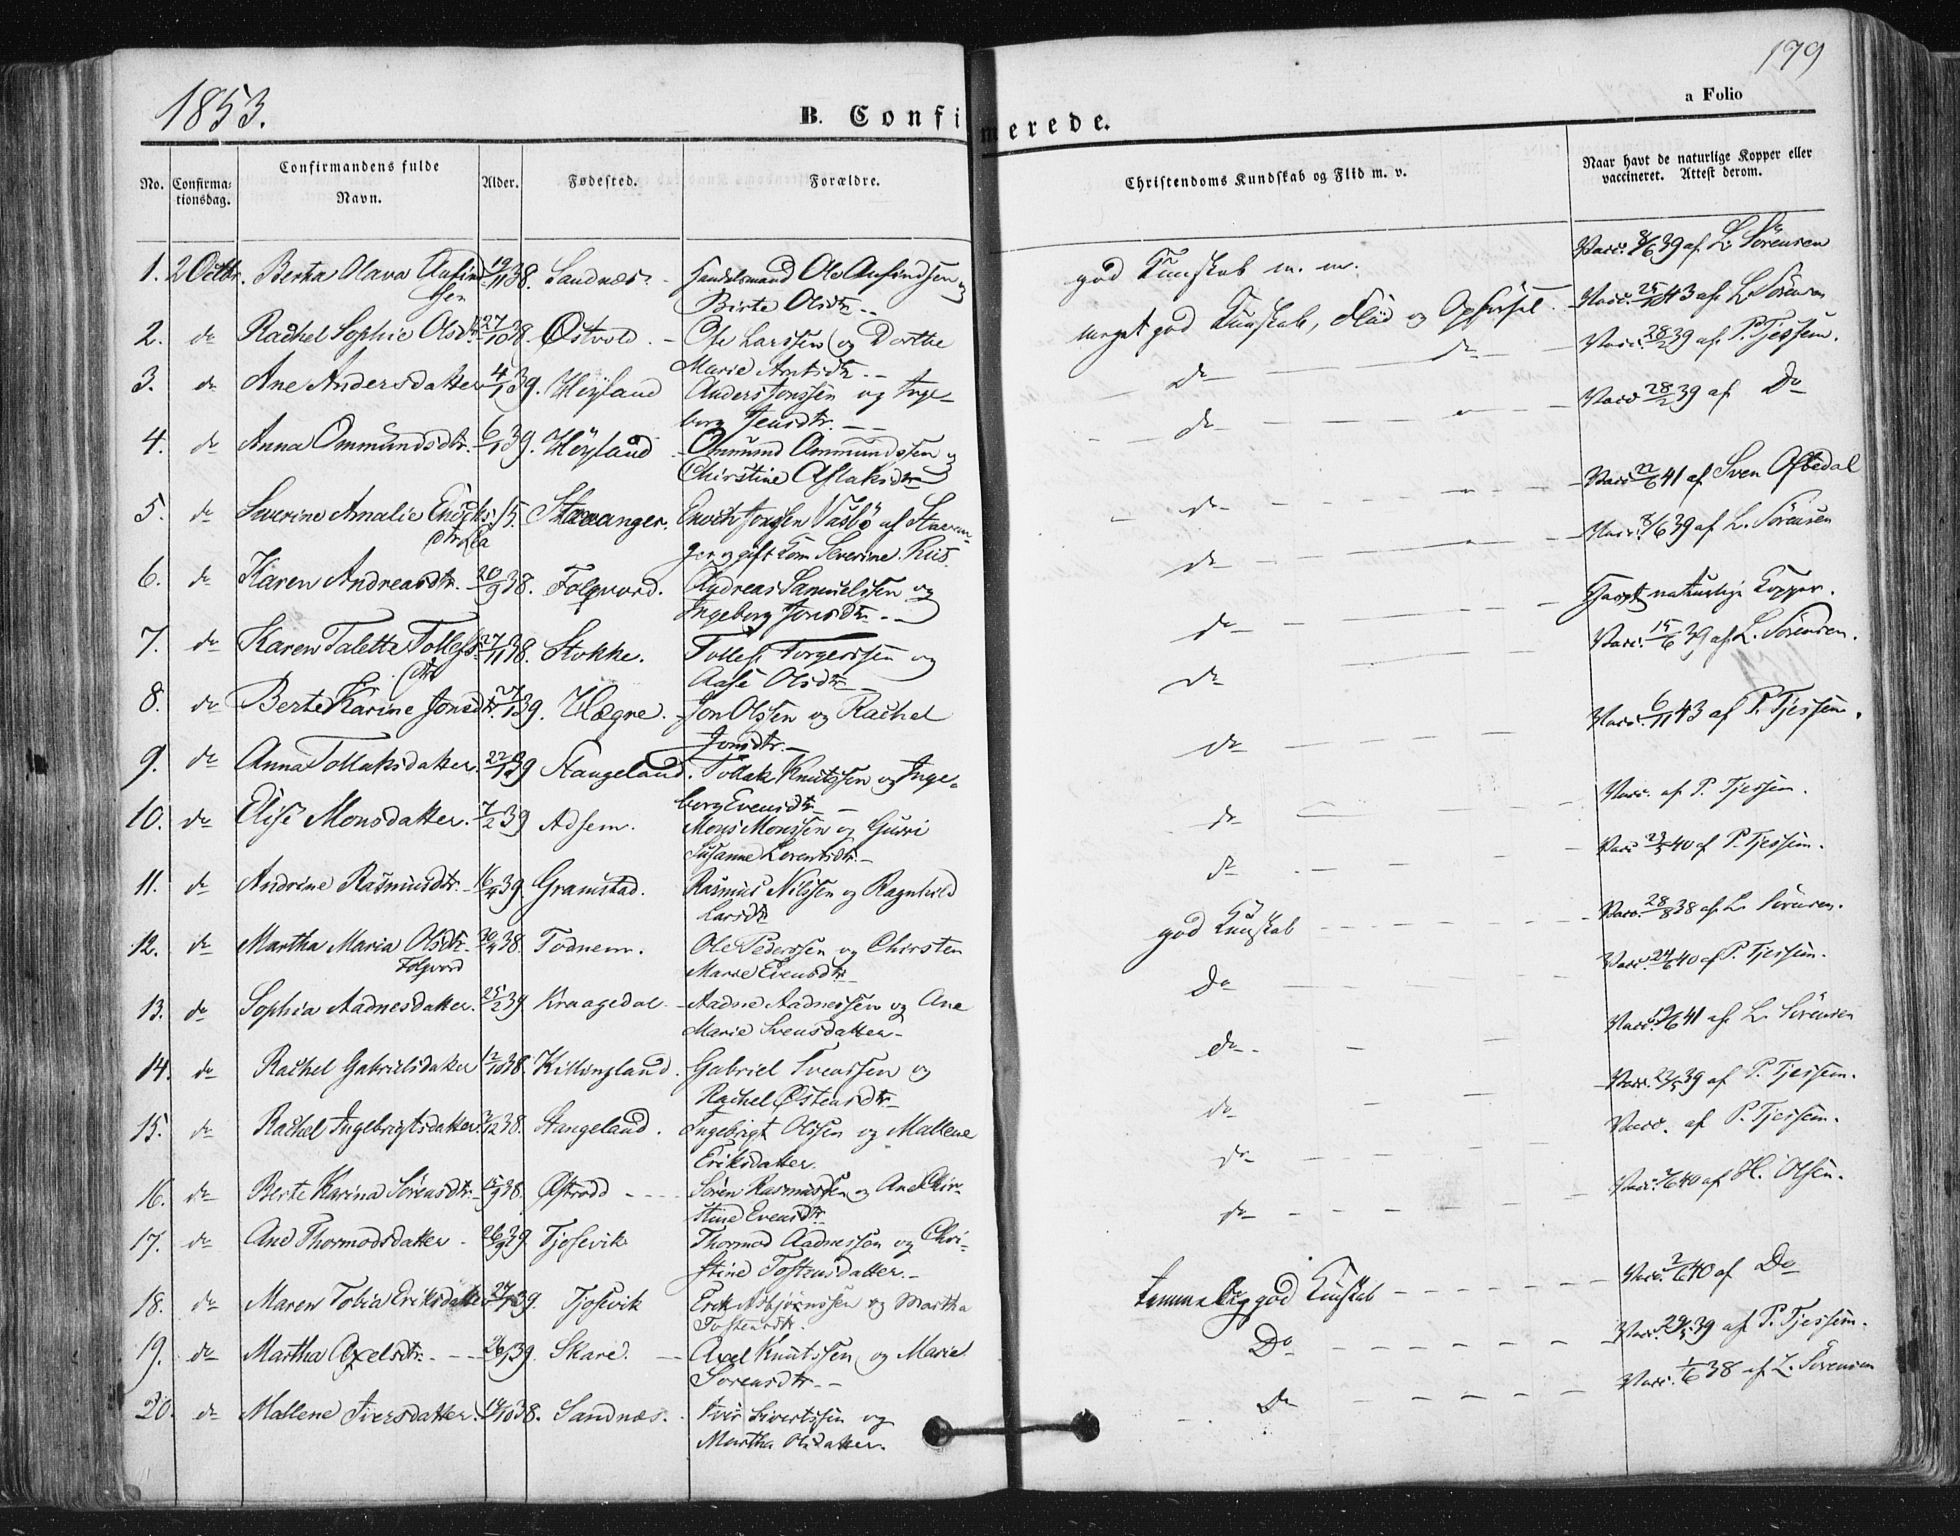 1853.
179
B. Confirmerede.
a Folio
No.
Confirma-
tionsdag.
Confirmandens fulde
Navn.
Alder.
Fødested.
Forældre.
Christendoms Kundskab og Flid m. v.
Naar havt de naturlige Kopper eller
vaccineret. Attest derom.
1. 2 Octbr. Berta Olava 19/11 38. Sandnæs. Handelsmand Ole Ansindsen og
Birte Olsdtr. god Kunskab m. m. Vacc. 8/6 39 af L. Sörensen
2. do Rachel Sophie Olsdtr. 27/10 38. Østvold. Ole Larssen og Dorthe
Marie Arntsdtr. meget god Kunskab, Flid og Opförsel Vacc. 25/10 43 af L. Sörensen
3. do Ane Andersdatter 4/1 39. Höyland Anders Jonssen og Inge-
borg Jensdtr. Do do Vacc. 28/2 39 af P. Tjessem.
4. do Anna Ommundsdtr. 6/1 39. Höyland Omund Ommundssen og
Chirstine Aslaksdtr do Vacc. 28/2 39 af Do
5. do Severine Amalie Enochs- 15. Stavanger. Enoch Jonssen Vasbö af Stavan-
dtr.
ger og gift Kone Severine Riis. do Vacc. 22/6 41 af Sven Oftedal
6. do Karen Andreasdtr. 20/9 38. Folqvord. Andreas Samuelssen og
Ingeborg Jonsdtr. do Vacc. 8/6 39 af L. Sörensen
7. do Karen Talette Tollefs- 27/11 38. Stokke. Tollef Torgerssen og
dtr
Aase Olsdtr do Havt naturlige Kopper.
8. do Berte Karine Jonsdtr. 27/1 39. Hægne. Jon Olssen og Rachel
Jonsdtr. do Vacc. 15/6 39 af L. Sörensen.
9. do Anna Tollaksdatter. 22/1 39 Stangeland. Tollak Knutssen og Inge-
borg Evensdtr. do Vacc. 6/11 43 af P. Tjessem.
10. do Elise Monsdatter. 7/2 39 Adsem. Mons Monssen og Gurri
Susanne Lorentsdtr. do Vacc. af P. Tjessem.
11. do Andrine Rasmusdtr. 16/4 39. Gramstad. Rasmus Nilssen og Ragnhild
Larsdtr do Vacc 23/5 40 af P. Tjessem.
12. do Martha Maria Olsdtr. 38. Todnem. Ole Pederssen og Chirsten
Folqvord
Marie Evensdtr god Kunskab Vacc. 28/8 38 af L. Sörensen.
13. do Sophia Aadnesdatter. 25/2 39 Kraagedal. Aadne Aadnessen og Ane
Marie Svensdatter Do Vacc. 24/6 40 af P. Tjessem.
14. do Rachel Gabrielsdatter 12/10 38. Killingland. Gabriel Svenssen og
Rachel Østensdtr do Vacc. 19/6 41 af L. Sörensen
15. do Rachel Ingebrigtsdatter /12 38. Stangeland. Ingebrigt Olssen og Mallene
Eriksdatter. do Vacc. 23/5 39 af P. Tjessem.
16. do Berte Karina Sörensdtr. 15/9 38. Østradd Sören Rasmussen og Ane Chir-
stine Evensdtr do Vacc. af P. Tjessem.
17. do Ane Thormodsdatter 39. Tjosevik Thormod Aadnessen og Chri-
stine Tostensdatter. do Vacc. 2/6 40 af H. Olsen.
18. do Maren Tobia Eriksdatter 39. Tjosevik Erik Asbjörnssen og Martha
Tostensdtr. temmelig god Kunskab Vacc. 2/6 40 af Do
19. do Martha Axelsdtr. 39. Skare. Axel Knutssen og Marie
Sorensdtr. Do Vacc. 39 af P. Tjessem.
20. do Mallene Iversdatter. 14/10 38. Sandnæs. Iver Sivertssen og
Martha Olsdatter. Do Vacc. 1/6 38 af L. Sörensen